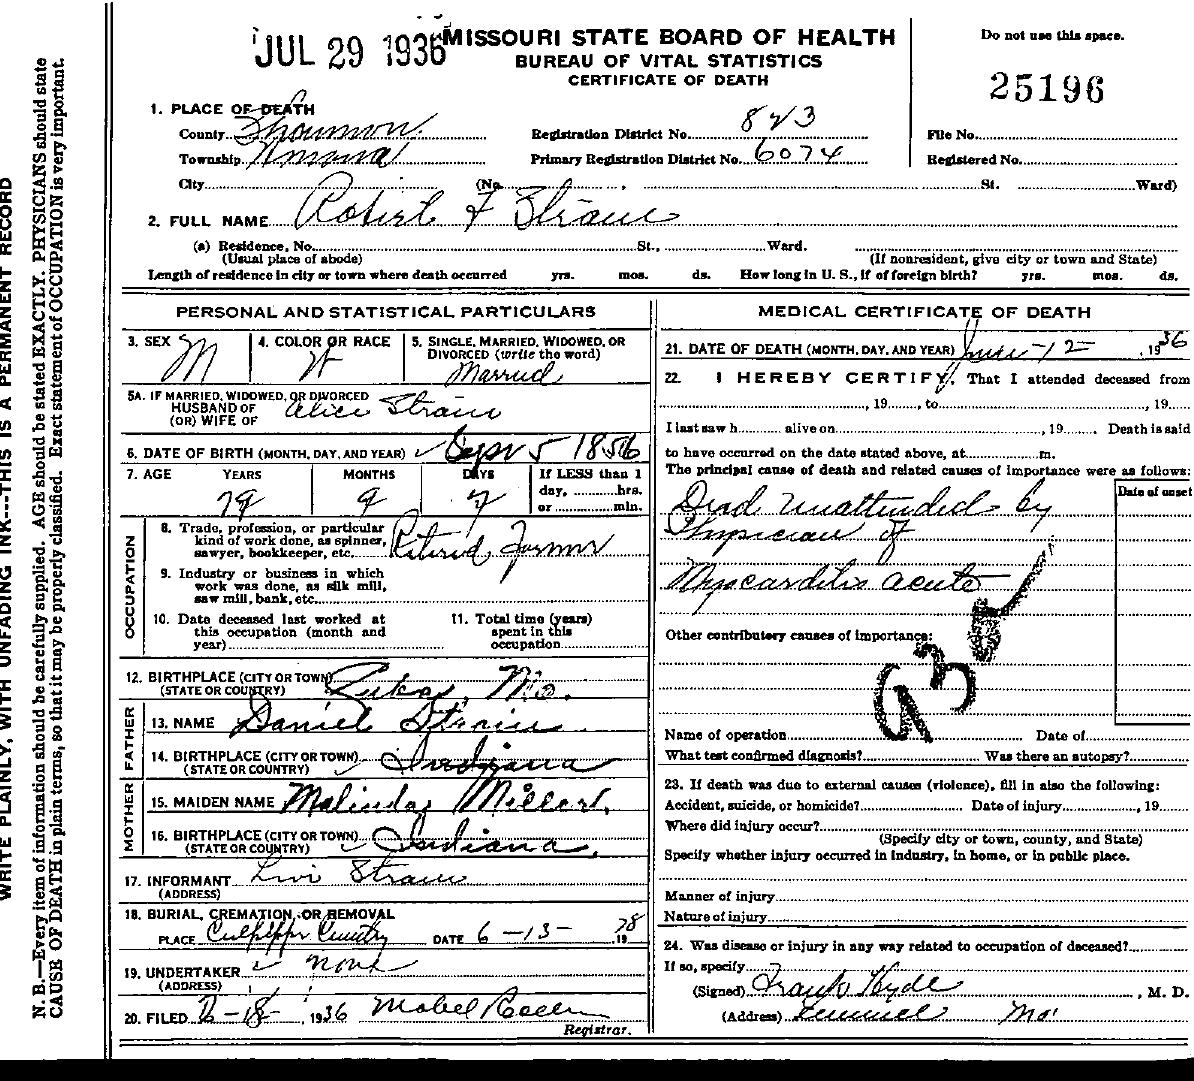 JUL 29 1936
MISSOURI STATE BOARD OF HEALTH
BUREAU OF VITAL STATISTICS
CERTIFICATE OF DEATH
Do not use this space.
25196
1. PLACE OF DEATH
County Shannon
Township
Registration District No. 823
Primary Registration District No. 6074
File No.
Registered No.
City (No. , St. Ward)
2. FULL NAME Robert F Strain
(a) Residence, No. St., Ward.
(Usual place of abode) (If nonresident, give city or town and State)
Length of residence in city or town where death occurred yrs. mos. ds. How long in U. S., if of foreign birth? yrs. mos. ds.
PERSONAL AND STATISTICAL PARTICULARS
3. SEX M
4. COLOR OR RACE W
5. SINGLE, MARRIED, WIDOWED, OR
DIVORCED (write the word)
Married
5A. IF MARRIED, WIDOWED, OR DIVORCED
HUSBAND OF Alice Strain
(OR) WIFE OF
6. DATE OF BIRTH (MONTH, DAY, AND YEAR) Sept 5 1856
7. AGE YEARS MONTHS DAYS If LESS than 1
day, hrs.
or min.
79 9 7
OCCUPATION
8. Trade, profession, or particular
kind of work done, as spinner,
sawyer, bookkeeper, etc. Retired Farmer
9. Industry or business in which
work was done, as silk mill,
saw mill, bank, etc.
10. Date deceased last worked at
this occupation (month and
year)
11. Total time (years)
spent in this
occupation
12. BIRTHPLACE (CITY OR TOWN)
(STATE OR COUNTRY) Mo.
FATHER
13. NAME Daniel Strain
14. BIRTHPLACE (CITY OR TOWN)
(STATE OR COUNTRY) Indiana
MOTHER
15. MAIDEN NAME Malinda
16. BIRTHPLACE (CITY OR TOWN)
(STATE OR COUNTRY) Indiana
17. INFORMANT Levi Strain
(ADDRESS)
18. BURIAL, CREMATION, OR REMOVAL
PLACE Culpepper DATE 6-13- 19
19. UNDERTAKER none
(ADDRESS)
20. FILED 18- 1936 Mabel
Registrar.
MEDICAL CERTIFICATE OF DEATH
21. DATE OF DEATH (MONTH, DAY, AND YEAR) June-12 , 1936
22. I HEREBY CERTIFY, That I attended deceased from
, 19 , to , 19
I last saw h alive on , 19 . Death is said
to have occurred on the date stated above, at m.
The principal cause of death and related causes of importance were as follows:
Date of onset
Died unattended by
Physician of
Myocarditis acute
Other contributory causes of importance:
93
Name of operation Date of
What test confirmed diagnosis? Was there an autopsy?
23. If death was due to external causes (violence), fill in also the following:
Accident, suicide, or homicide? Date of injury , 19
Where did injury occur?
(Specify city or town, county, and State)
Specify whether injury occurred in industry, in home, or in public place.
Manner of injury
Nature of injury
24. Was disease or injury in any way related to occupation of deceased?
If so, specify
(Signed) Frank Hyde , M. D.
(Address) Mo.
WRITE PLAINLY, WITH UNFADING INK---THIS IS A PERMANENT RECORD
N. B.—Every item of information should be carefully supplied. AGE should be stated EXACTLY. PHYSICIANS should state
CAUSE OF DEATH in plain terms, so that it may be properly classified. Exact statement of OCCUPATION is very important.